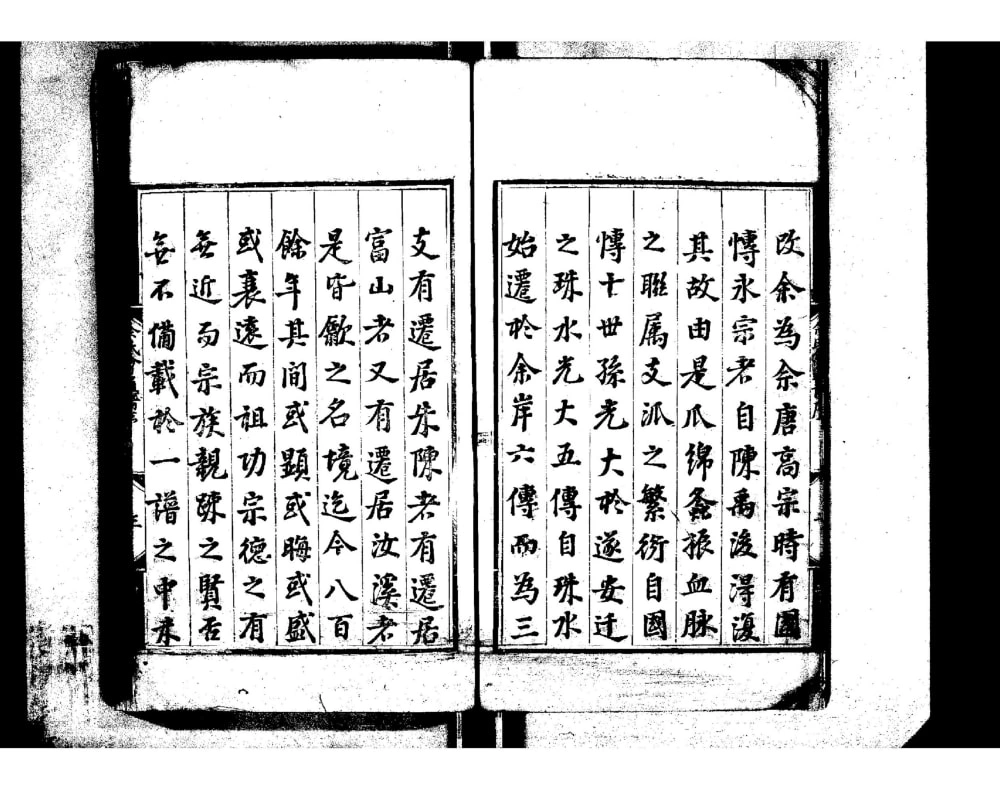 改余為佘唐高宗時有國
愽永宗者自陳禹後淂復
其故由是爪綿螽振血脉
之聮属支派之繁衍自國
愽十世孫光大於遂安迁
之珠水光大五傳自珠水
始遷於余岸六傳而為三
支有遷居朱陳者有遷居
富山者又有遷居汝溪者
是皆歙之名境迄今八百
餘年其间或顕或晦或盛
或衰遠而祖功宗德之有
無近而宗族親踈之賢否
無不偹載於一譜之中未